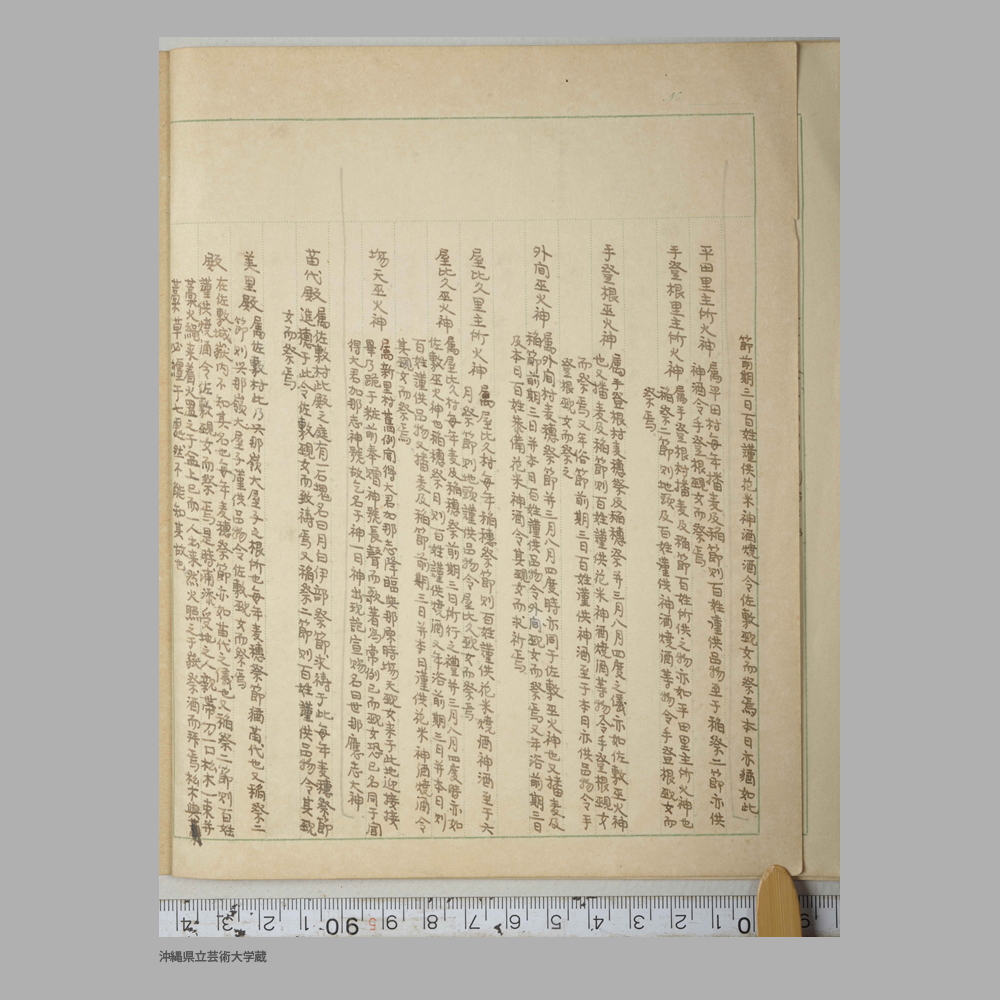 節前期三日百姓謹供花米神酒燒酒令佐敷覡女而祭焉本日亦猶如此
平田里主所火神 屬平田村每年播麦及稲節則百姓謹供品物至于稲祭二節亦供
神酒令手登根覡女而祭焉
手登根里主所火神 屬手登根村播麦及稲節百姓所供之物亦如平田里主所火神也
稲祭二節則地頭及百姓謹供神酒燒酒等物令手登根覡女而
祭焉
手登根巫火神 屬手登根村麦穗祭及稲穗祭并三月八月四度之儀亦如佐敷巫火神
也又播麦及稲節則百姓謹供花米神酒燒酒等物令手登根覡女
而祭焉又年俗節前期三日百姓謹供神酒至于本日亦供品物令手
登根覡女而祭之
外间巫火神 屬外间村麦穗祭節并三月八月四度時亦同于佐敷巫火神也又播麦及
稲節前期三日并本日百姓謹供品物令外间覡女而祭焉又年浴前期三日
及本日百姓恭備花米神酒令其覡女而求祈焉
屋比久里主所火神 屬屋比久村每年稲穗祭節則百姓謹供花米燒酒神酒至于六
月祭節則地頭謹供品物令屋比久覡女而祭焉
屋比久巫火神 屬屋比久村每年麦及稲穗祭前期三日所行之禮并三月八月四度時亦如
佐敷巫火神也稲穗祭日則百姓謹供燒酒又年浴前期三日并本日則
百姓謹供品物又播麦及稲節前期三日并本日謹供花米神酒燒酒令
其覡女而祭焉
場天巫火神 屬新里村舊例聞得大君加那志降臨與那原時場天覡女来于此地迎接接
畢乃跪于粧前奉贈神號長聲而歌著為常例已而覡女恐己名同于聞
得大君加那志神號故乞名于神一日神出現詑宣賜名曰世那應志大神
苗代殿 屬佐敷村此殿之庭有一石塊名曰月白伊部祭節求祷于此每年麦穗祭節
進穗于此令佐敷覡女而致祷焉又稲祭二節則百姓謹供品物令其覡
女而祭焉
美里殿 屬佐敷村此乃與那嶺大屋子之根所也每年麦穗祭節猶苗代也又稲祭二
節則與那嶺大屋子謹供品物令佐敷覡女而祭焉
殿 在佐敷城嶽内不知其名也每年麦穗祭節亦如苗代之儀也又稲祭二節則百姓
謹供燒酒令佐敷覡女而祭焉是時浦添受地之人親帶刀一口松木一束并
藁火繩来着火置之于盃上已而人出来然火照之于嶽祭酒而拜焉松木與
藁草必積于七處然不能知其故也
沖縄県立芸術大学蔵